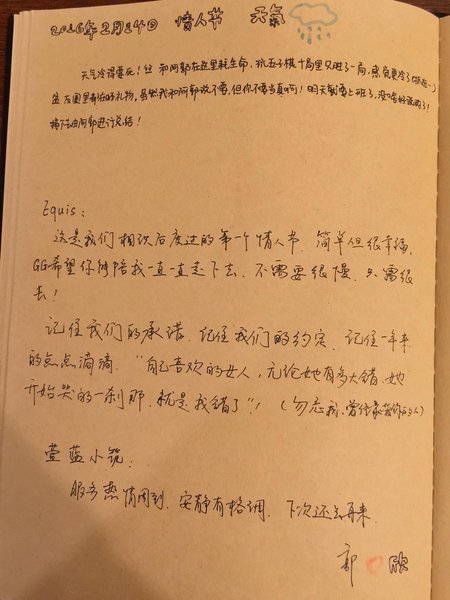 2026年2月14日 情人节 天氣
天气冷得要死!丝 和阿郭在这里耗生命,玩五子棋十局里只胜了一局,感觉更冷了(抓狂…)
盆友圈里都在晒礼物,虽然我和阿郭说不要,但你不要当真啊!明天就要上班了,没啥好说的了!
接下去由阿郭进行总结!
Equis:
这是我们相识后度过的第一个情人节,简单但很幸福,
GG希望你能陪我一直一直走下去,不需要很慢,只需很
去!
记住我们的承诺,记住我们的约定,记住一年来
的点点滴滴,“自己喜欢的女人,无论她有多大错,她
开始哭的一刹那,就是我错了”!(勿忘我,曾经最爱你的人)
萱蓝小筑:
服务热情周到,安静有格调,下次还会再来.
郭 欣